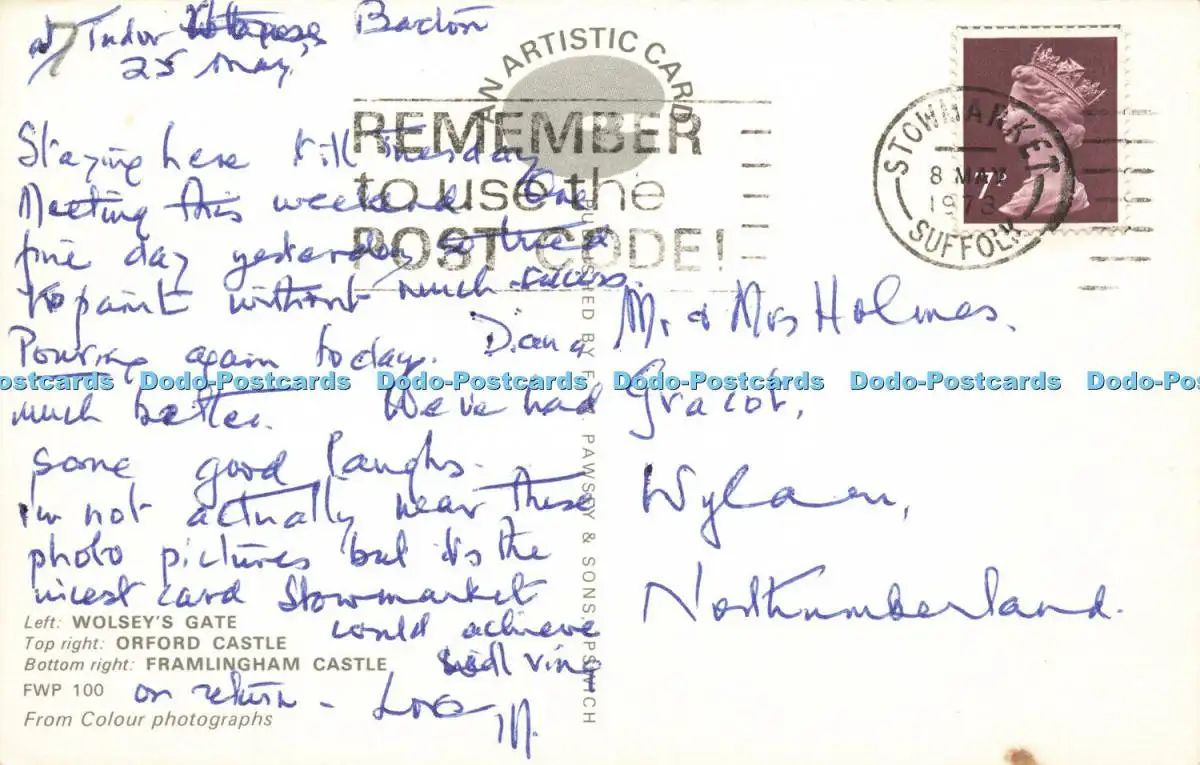 at Tudor Bacton
25 May,
Staying here till Tuesday
Meeting this weekend One
fine day yesterday so tried
to paint without much success.
Pouring again today. Diana
much better. We've had
some good laughs.
I'm not actually near these
photo pictures but it's the
nicest card Stowmarket
could achieve
will ring
on return - Love
M.
Left: WOLSEY'S GATE
Top right: ORFORD CASTLE
Bottom right: FRAMLINGHAM CASTLE
FWP 100
From Colour photographs
AN ARTISTIC CARD
REMEMBER
to use the
POST CODE!
PUBLISHED BY F. PAWSEY & SONS, IPSWICH
STOWMARKET
8 MAY
1973
SUFFOLK
7
Mr & Mrs Holmes.
Wylam,
Northumberland.
Dodo-Postcards Dodo-Postcards Dodo-Postcards Dodo-Postcards Dodo-Postcards Dodo-Postcards